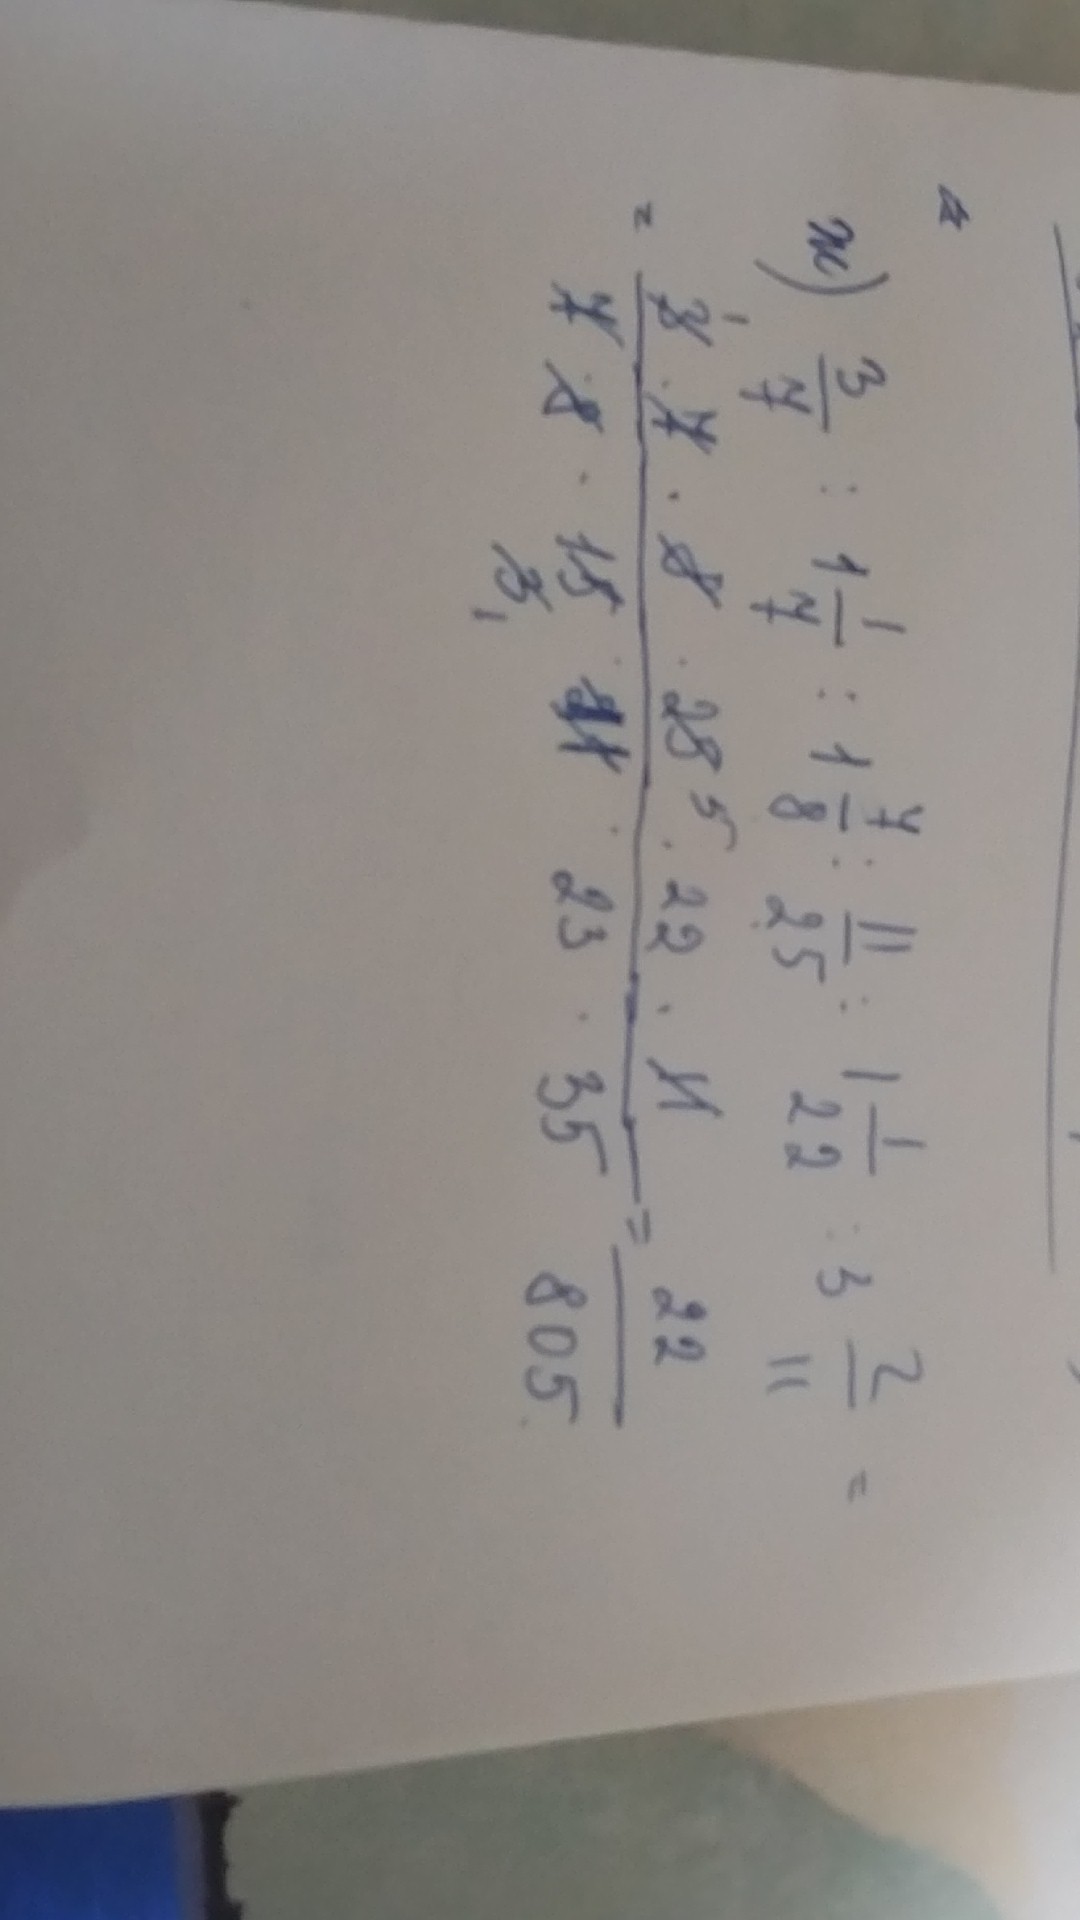 ж) 3/7 : 1 1/7 : 1 7/8 : 11/25 : 1 1/22 : 3 2/11 =
= (3 · 7 · 8 · 25 · 22 · 11)/(7 · 8 · 15 · 11 · 23 · 35) = 22/805